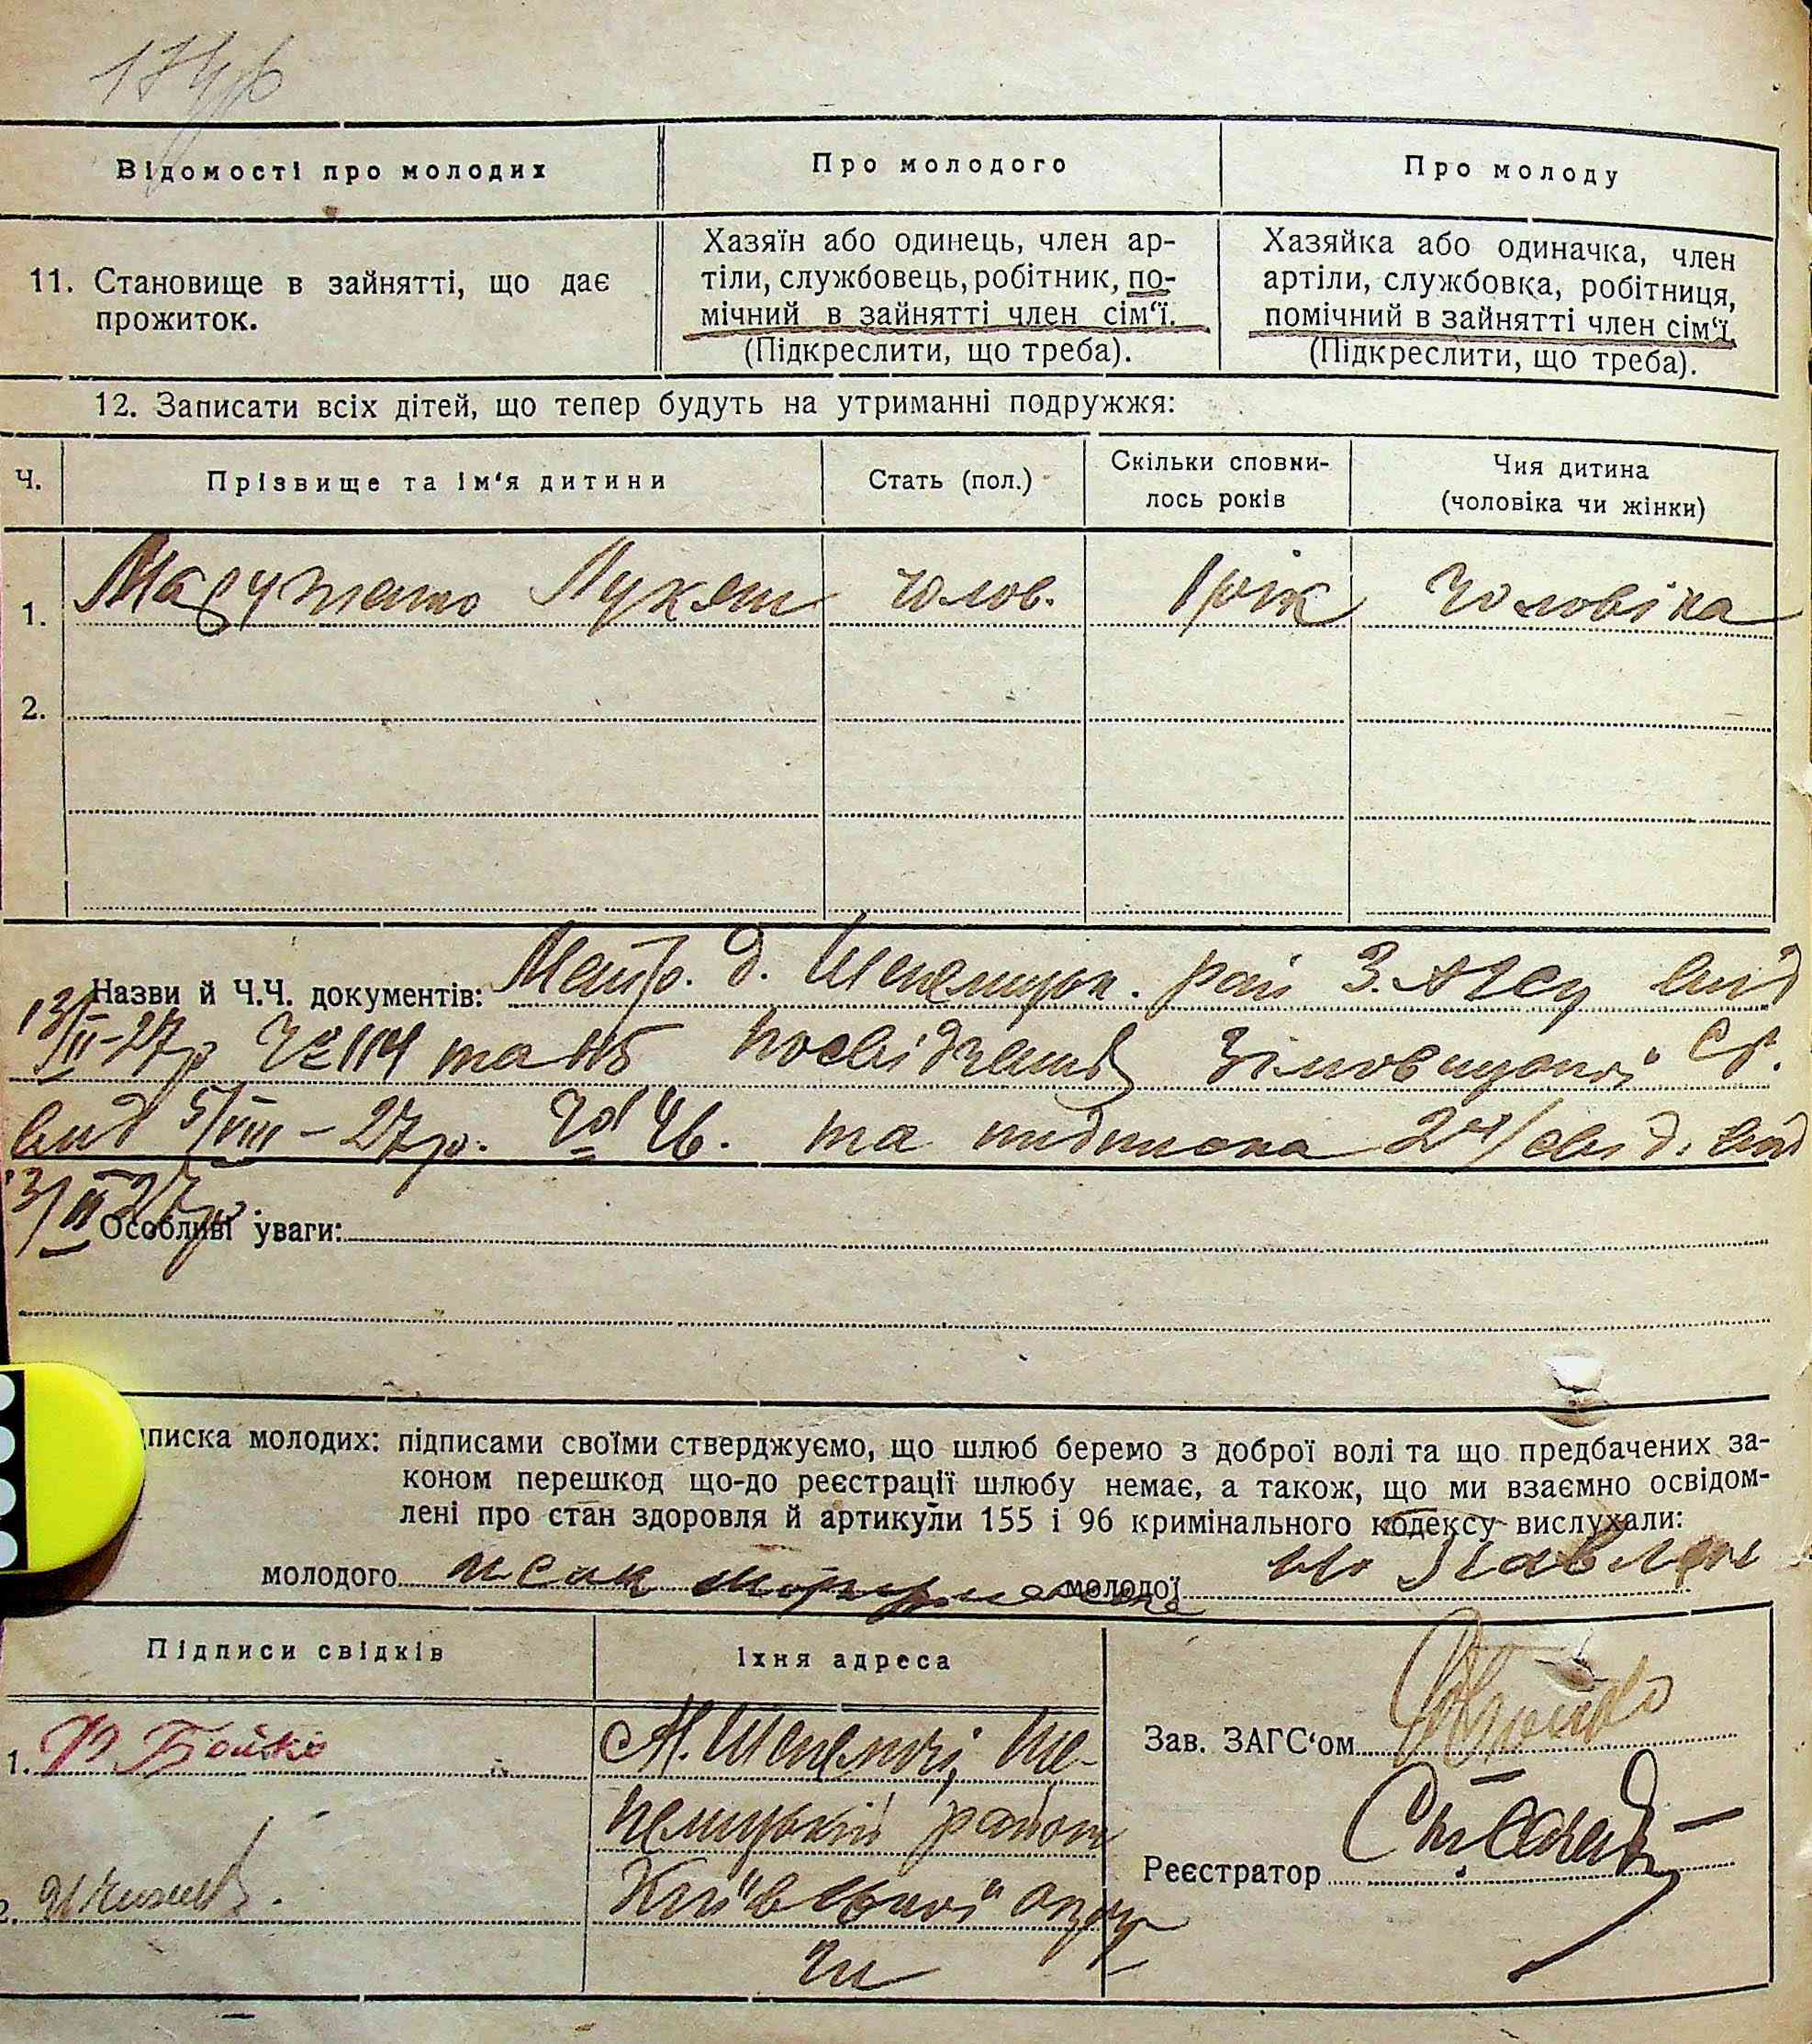 Відомості про молодих
Про молодого
Про молоду
11. Становище в зайнятті, що дає
прожиток.
Хазяїн або одинець, член ар-
тіли, службовець, робітник, по-
мічний в зайнятті член сім‘ї.
(Підкреслити, що треба).
Хазяйка або одиначка, член
артіли, службовка, робітниця,
помічний в зайнятті член сім‘ї
(Підкреслити, що треба).
12. Записати всіх дітей, що тепер будуть на утриманні подружжя:
Ч.
Прізвище та ім‘я дитини
Стать (пол.)
Скільки сповни-
лось років
Чия дитина
(чоловіка чи жінки)
1.
Лукаш
чолов.
1 рік
Чоловіка
2.
Назви й Ч.Ч. документів: Метр. д. рай З.АГСу від
13/II-27р Ч 114 та 115 Зімовицької С.Р.
від 5/VIII-27р. Ч 46. та підписка 2х/свід. від
3/II 27р.
Особливі уваги:
писка молодих: підписами своїми стверджуємо, що шлюб беремо з доброї волі та що предбачених за-
коном перешкод що-до реєстрації шлюбу немає, а також, що ми взаємно освідом-
лені про стан здоровля й артикули 155 і 96 кримінального кодексу вислухали:
молодого Исак
молодої
Підписи свідків
Їхня адреса
1. Бойко
М. Шепеличі, Ше-
пелицький район
Київської окру
ги
2.
Зав. ЗАГС‘ом
Реєстратор